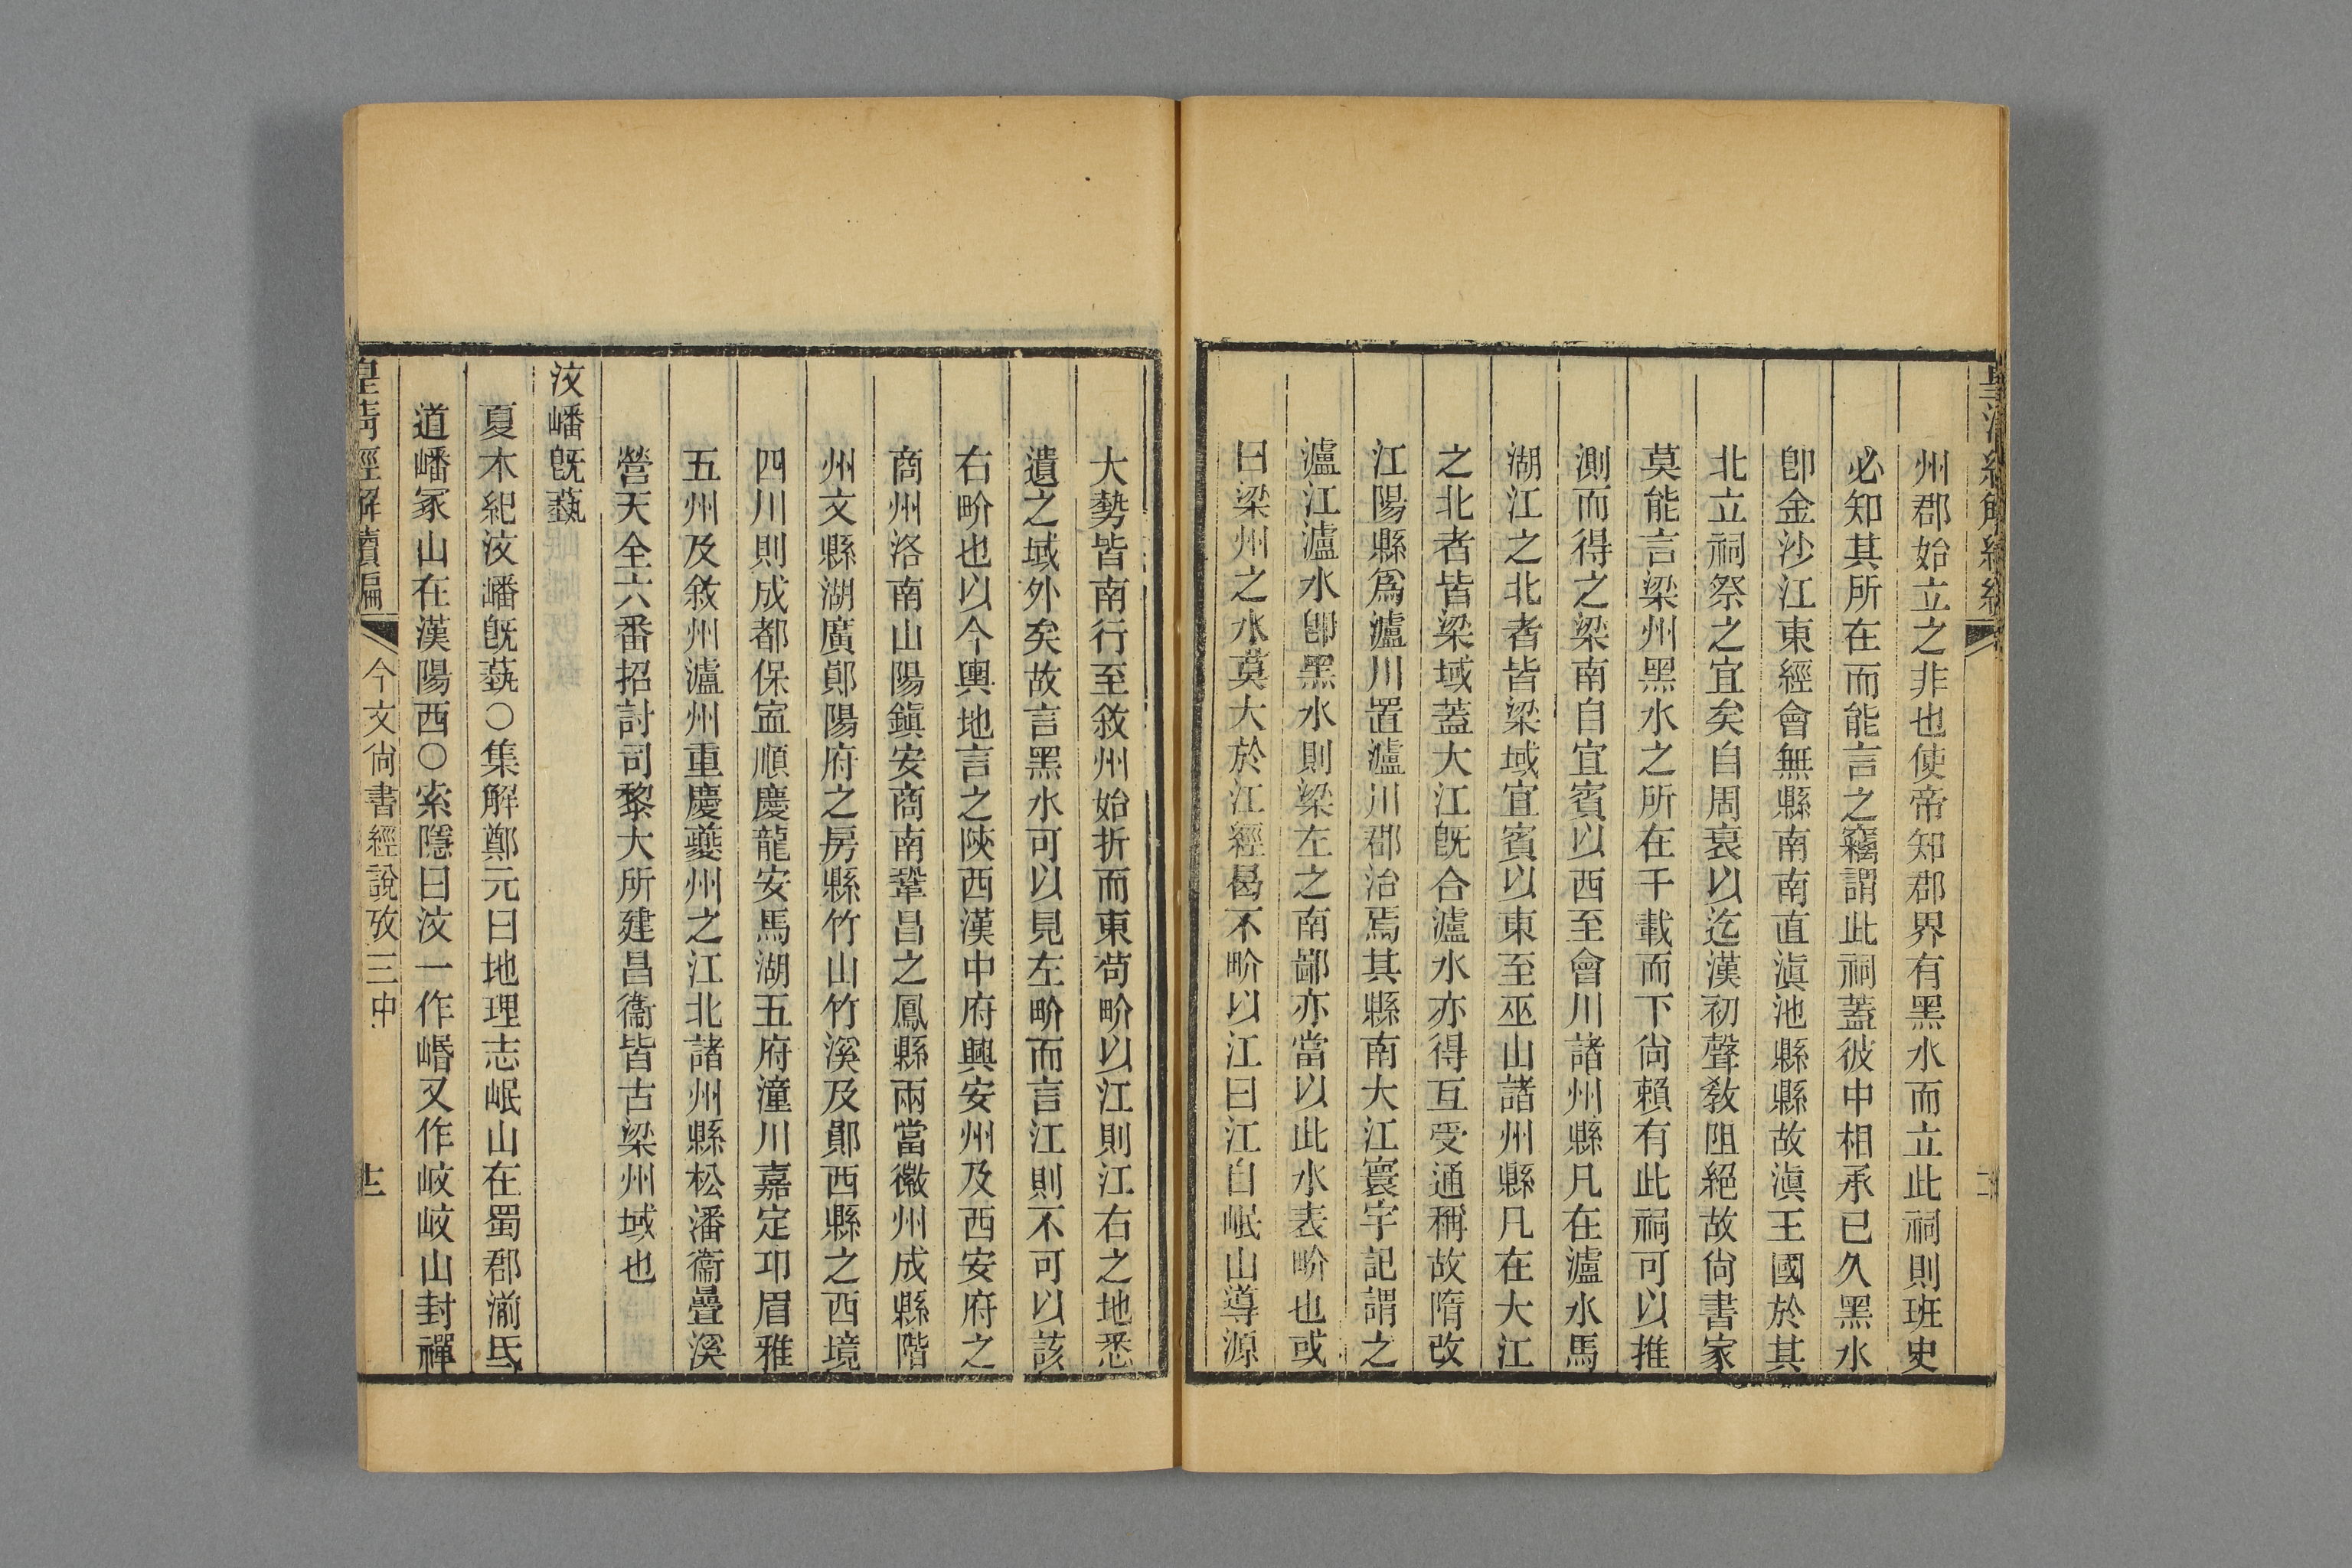 州郡始立之非也使帝知郡界有黑水而立此祠則班史
必知其所在而能言之竊謂此祠蓋彼中相承已久黑水
卽金沙江東經會無縣南南直滇池縣縣故滇王國於其
北立祠祭之宜矣自周衰以迄漢初聲敎阻絕故尙書家
莫能言梁州黑水之所在千載而下尙賴有此祠可以推
測而得之梁南自宜賓以西至會川諸州縣凡在瀘水馬
湖江之北者皆梁域宜賓以東至巫山諸州縣凡在大江
之北者皆梁域蓋大江旣合瀘水亦得互受通稱故隋改
江陽縣爲瀘川置瀘川郡治焉其縣南大江寰宇記謂之
瀘江瀘水卽黑水則梁左之南鄙亦當以此水表畍也或
曰梁州之水莫大於江經曷不畍以江曰江自岷山導源
大勢皆南行至敘州始折而東苟畍以江則江右之地悉
遺之域外矣故言黑水可以見左畍而言江則不可以該
右畍也以今輿地言之陜西漢中府興安州及西安府之
商州洛南山陽鎭安商南鞏昌之鳳縣兩當徽州成縣階
州文縣湖廣鄖陽府之房縣竹山竹溪及鄖西縣之西境
四川則成都保寍順慶龍安馬湖五府潼川嘉定邛眉雅
五州及敘州瀘州重慶夔州之江北諸州縣松潘衞疊溪
營天全六番招討司黎大所建昌衞皆古梁州域也
汶嶓旣蓺
夏本紀汶嶓旣蓺○集解鄭元曰地理志岷山在蜀郡湔氐
道嶓冢山在漢陽西○索隱曰汶一作㟭又作岐岐山封禪
皇淸經解續編
今文尙書經說攷三中